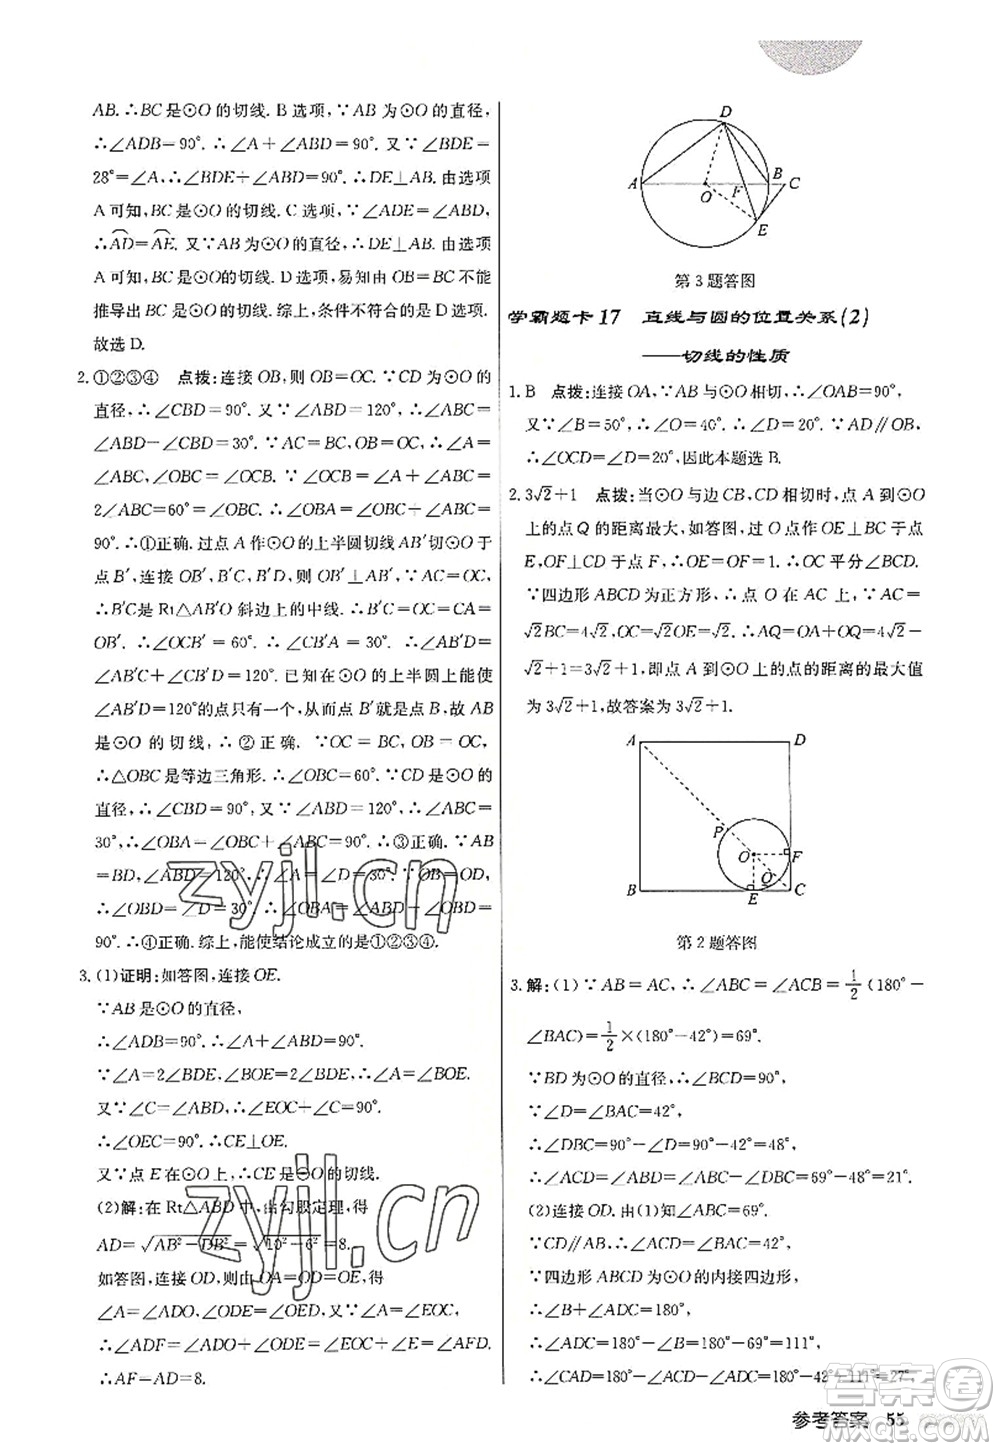 AB.∴BC是⊙O的切线.B选项,∵AB是⊙O的直径,
∴∠ADB=90°.∴∠A+∠ABD=90°.又∵∠BDE=
28°=∠A,∴∠BDE+∠ABD=90°.∴DE⊥AB.由选项
A可知,BC是⊙O的切线.C选项,∵∠ADE=∠ABD,
∴AD=AE.又∵AB为⊙O的直径,∴DE⊥AB.由选项
A可知,BC是⊙O的切线.D选项,易知由OB=BC不能
推导出BC是⊙O的切线.综上,条件不符合的是D选项.
故选D.
2.①②③④ 点拨:连接OB,则OB=OC.∵CD为⊙O的
直径,∴∠CBD=90°.又∵∠ABD=120°,∴∠ABC=
∠ABD-∠CBD=30°.∵AC=BC,OB=OC,∴∠A=
∠ABC,∠OBC=∠OCB.∵∠OCB=∠A+∠ABC=
2∠ABC=60°=∠OCB.∴∠OBA=∠OBC+∠ABC=
90°.∴①正确.过点A作⊙O的上半圆切线AB′切⊙O于
点B′,连接OB′,B′C,∴∠AB′O=90°.∵AC=OC,
∴B′C是Rt△AB′O斜边上的中线.∴B′C=OC=CA=
OB′.∴∠OCB′=60°.∴∠CB′A=30°.∴∠AB′D=
∠CB′D+∠CB′A=120°.已知在⊙O的上半圆上能使
∠AB′D=120°的点只有一个,从而点B′就是点B,故AB
是⊙O的切线,∴②正确.∵OC=BC,∴OC=BC=OB.
∴△OBC是等边三角形.∴∠OBC=60°.∵CD为⊙O的
直径,∴∠CBD=90°,又∵∠ABD=120°,∴∠ABC=
30°,∴∠OBA=∠OBC+∠ABC=90°.∴③正确.∵AB
=BD,∠ABD=120°,∴∠A=∠D=30°.∵OB=OD,
∴∠OBD=∠D=30°.∴∠OBA=∠ABD-∠OBD=
90°.∴④正确.综上,能使结论成立的是①②③④.
3.(1)证明:如答图,连接OE.
∵AB是⊙O的直径,
∴∠ADB=90°,∴∠A+∠ABD=90°.
∵∠A=∠BDE,∠BOE=2∠BDE,∴∠A=∠BOE.
又∵∠C=∠ABD,∴∠EOC+∠C=90°.
∴∠OEC=90°.∴CE⊥OE.
又∵点E在⊙O上,∴CE是⊙O的切线.
(2)解:在Rt△ABD中,由勾股定理,得
AD=√AB²-DB²=√10²-6²=8.
如答图,连接OD,则由OA=OD=OE,得
∠A=∠ADO,∠ODE=∠OED,又∵∠A=∠EOC,
∴∠ADF=∠ADO+∠ODE=∠A+∠E=∠AFD.
∴AF=AD=8.
D
A
B
C
O
F
E
第3题答图
学霸题卡17 直线与圆的位置关系(2)
——切线的性质
1.B 点拨:连接OA,∵AB与⊙O相切,∴∠OAB=90°,
又∵∠B=50°,∴∠O=40°.∴∠D=20°.∵AD∥OB,
∴∠OCD=∠D=20°,因此本题选B.
2.3√2+1 点拨:当⊙O与边CB,CD相切时,点A到⊙O
上的点Q的距离最大,如答图,过O点作OE⊥BC于点
E,OF⊥CD于点F,∴OE=OF=1.∴OC平分∠BCD.
∵四边形ABCD为正方形,∴点O在AC上,∵AC=
√2BC=4√2,OC=√2OE=√2.∴AQ=OA+OQ=4√2-
√2+1=3√2+1,即点A到⊙O上的点的距离的最大值
为3√2+1,故答案为3√2+1.
A
D
P
O
F
Q
B
E
C
第2题答图
3.解:(1)∵AB=AC,∴∠ABC=∠ACB=1/2(180°-
∠BAC)=1/2×(180°-42°)=69°.
∵BD为⊙O的直径,∴∠BCD=90°,
∵∠D=∠BAC=42°,
∴∠DBC=90°-∠D=90°-42°=48°,
∴∠ACD=∠ABD=∠ABC-∠DBC=69°-48°=21°.
(2)连接OD.由(1)知∠ABC=∠ACB=69°.
∵CD∥AB,∴∠ACD=∠BAC=42°,
∵四边形ABCD为⊙O的内接四边形,
∴∠B+∠ADC=180°,
∴∠ADC=180°-∠B=180°-69°=111°,
∴∠CAD=180°-∠ACD-∠ADC=180°-42°-111°=27°,
参考答案 55
zyjl.cn
zyjl.cn
答案圈